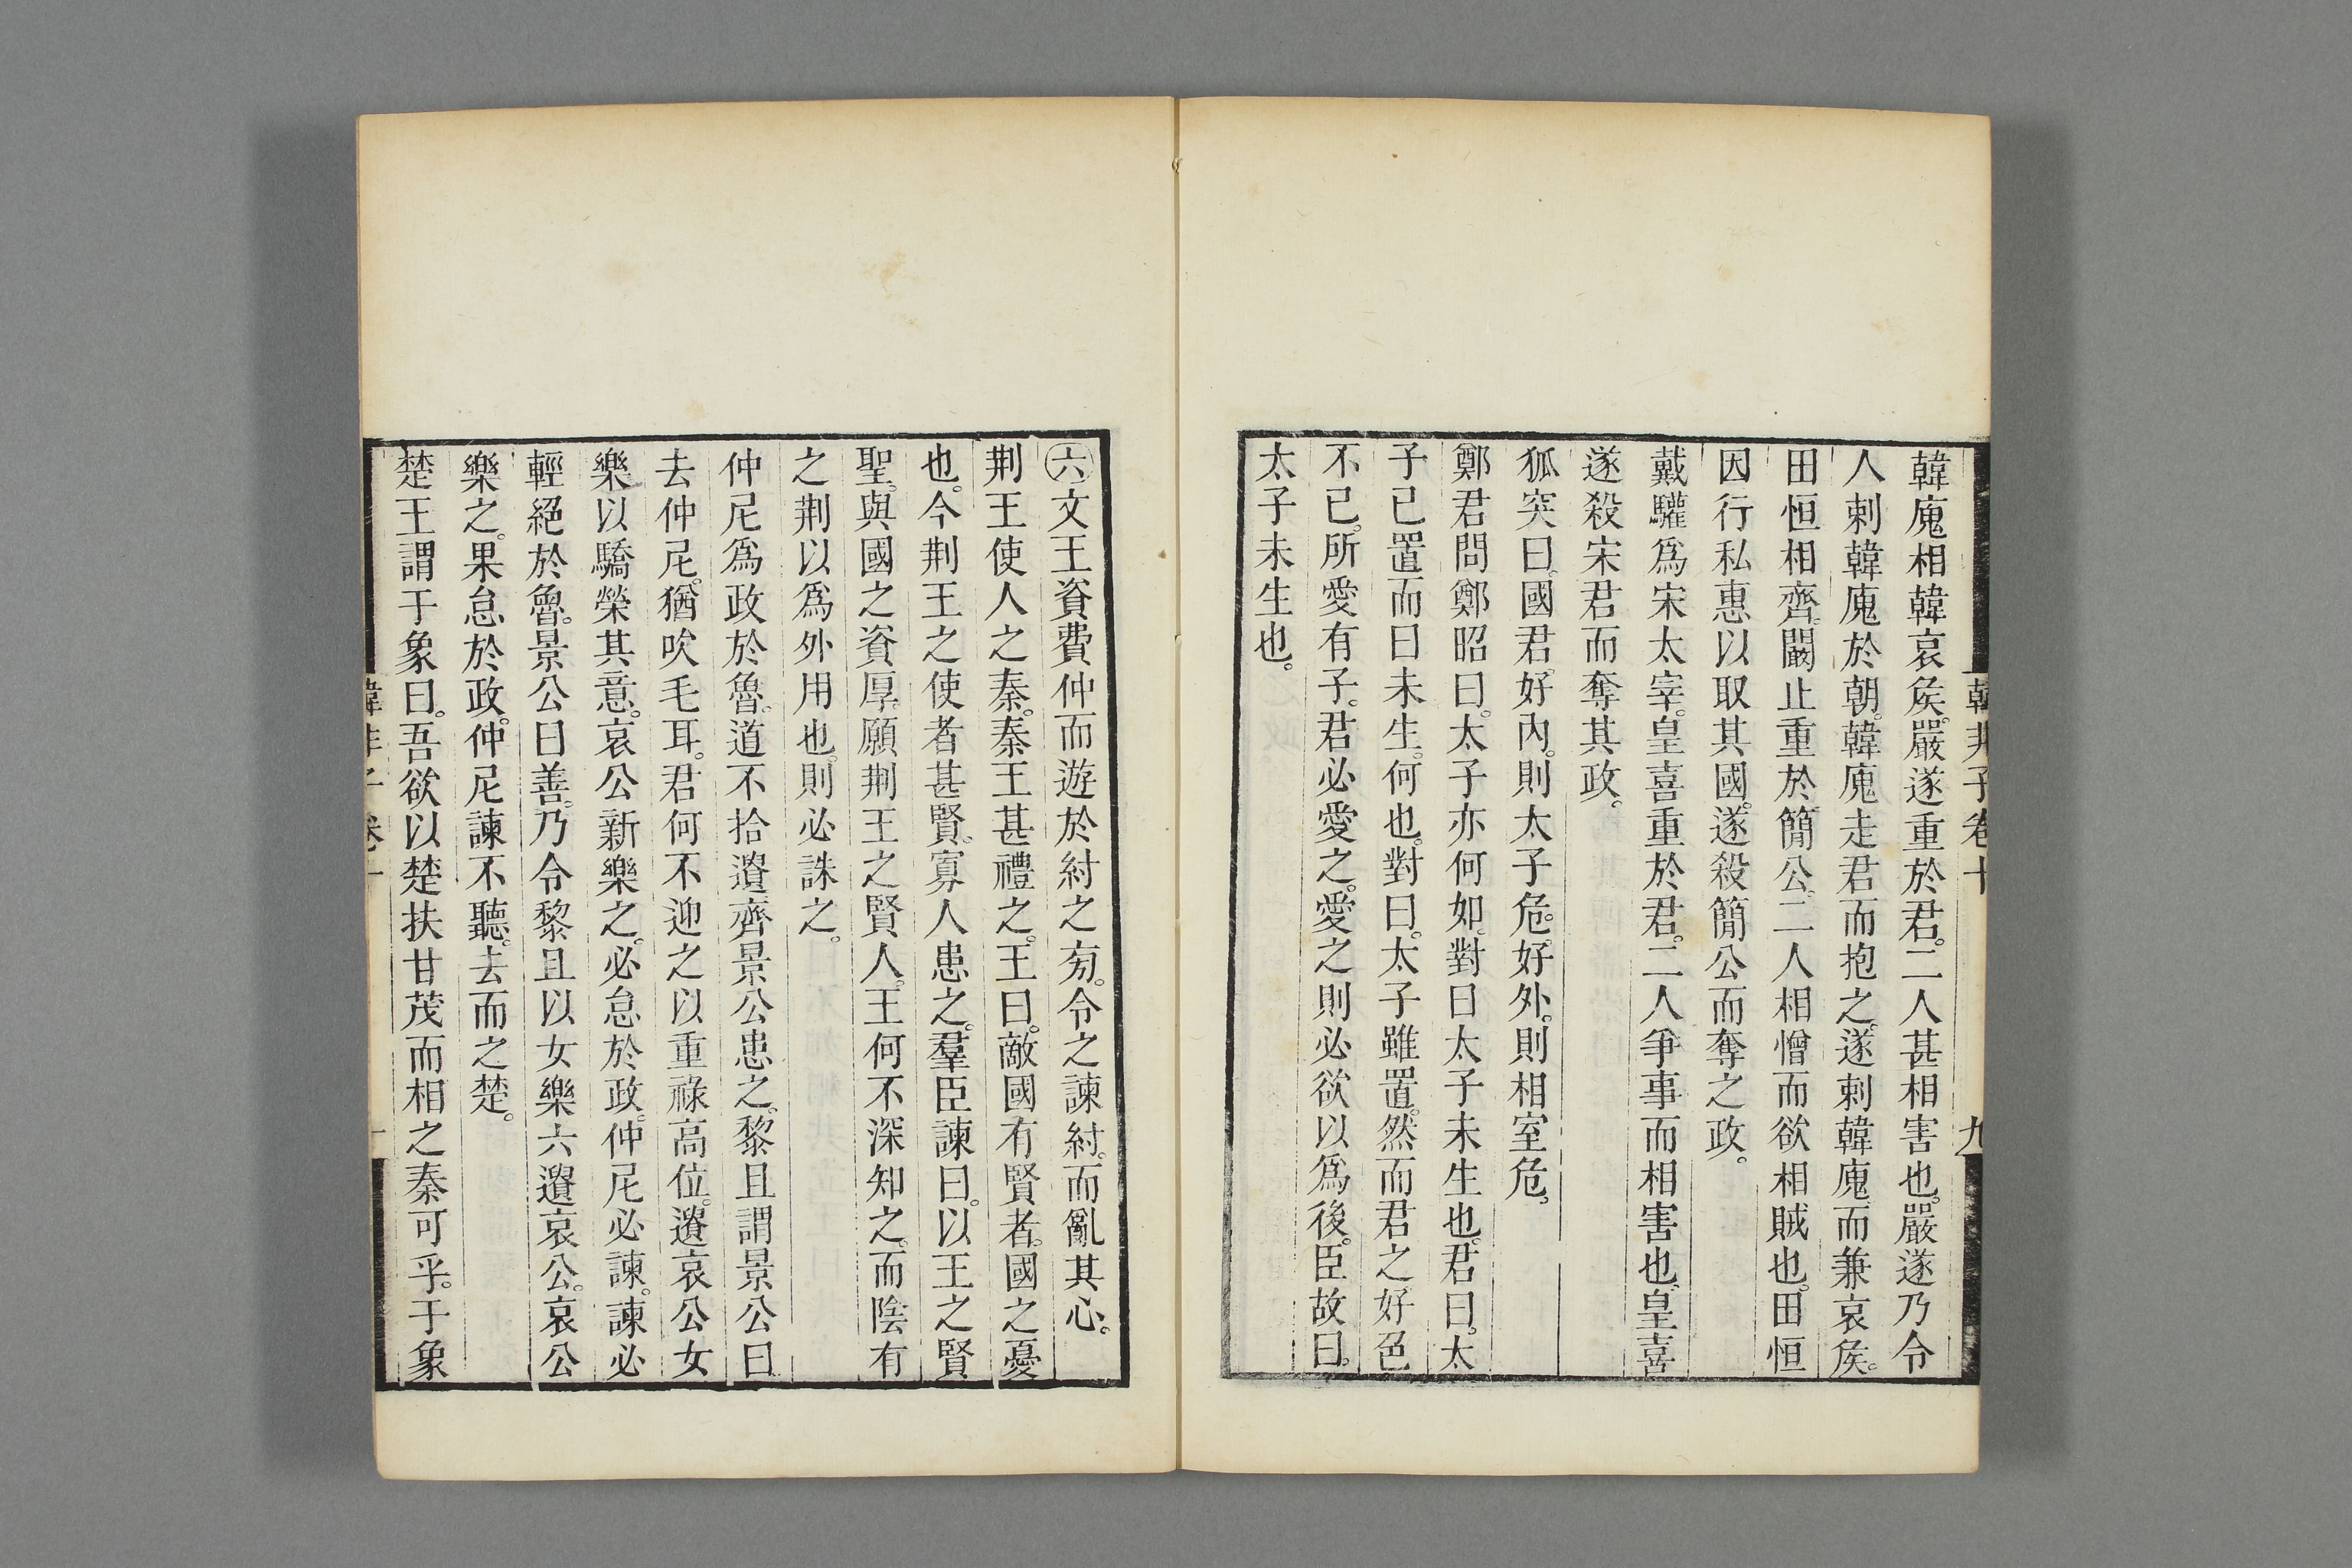 韓非子卷十
九
韓廆相韓哀矦。嚴遂重於君。二人甚相害也。嚴遂乃令
人刺韓廆於朝。韓廆走君而抱之。遂刺韓廆而兼哀矦。
田恒相齊。闞止重於簡公。二人相憎而欲相賊也。田恒
因行私惠以取其國。遂殺簡公而奪之政。
戴驩爲宋太宰。皇喜重於君。二人爭事而相害也。皇喜
遂殺宋君而奪其政。
狐突曰。國君好內。則太子危。好外。則相室危。
鄭君問鄭昭曰。太子亦何如。對曰太子未生也。君曰。太
子已置而曰未生。何也。對曰。太子雖置。然而君之好色
不已。所愛有子。君必愛之。愛之則必欲以爲後。臣故曰。
太子未生也。
㊅文王資費仲而遊於紂之旁。令之諫紂。而亂其心。
荆王使人之秦。秦王甚禮之。王曰。敵國有賢者。國之憂
也。今荆王之使者甚賢。寡人患之。羣臣諫曰。以王之賢
聖。與國之資厚。願荆王之賢人。王何不深知之。而陰有
之荆以爲外用也。則必誅之。
仲尼爲政於魯。道不拾遺齊景公患之。黎且謂景公曰
去仲尼。猶吹毛耳。君何不迎之以重祿高位。遺哀公女
樂以驕榮其意。哀公新樂之。必怠於政。仲尼必諫。諫必
輕絕於魯。景公曰善。乃令黎且以女樂六遺哀公。哀公
樂之。果怠於政。仲尼諫不聽。去而之楚。
楚王謂于象曰。吾欲以楚扶甘茂而相之秦可乎。于象